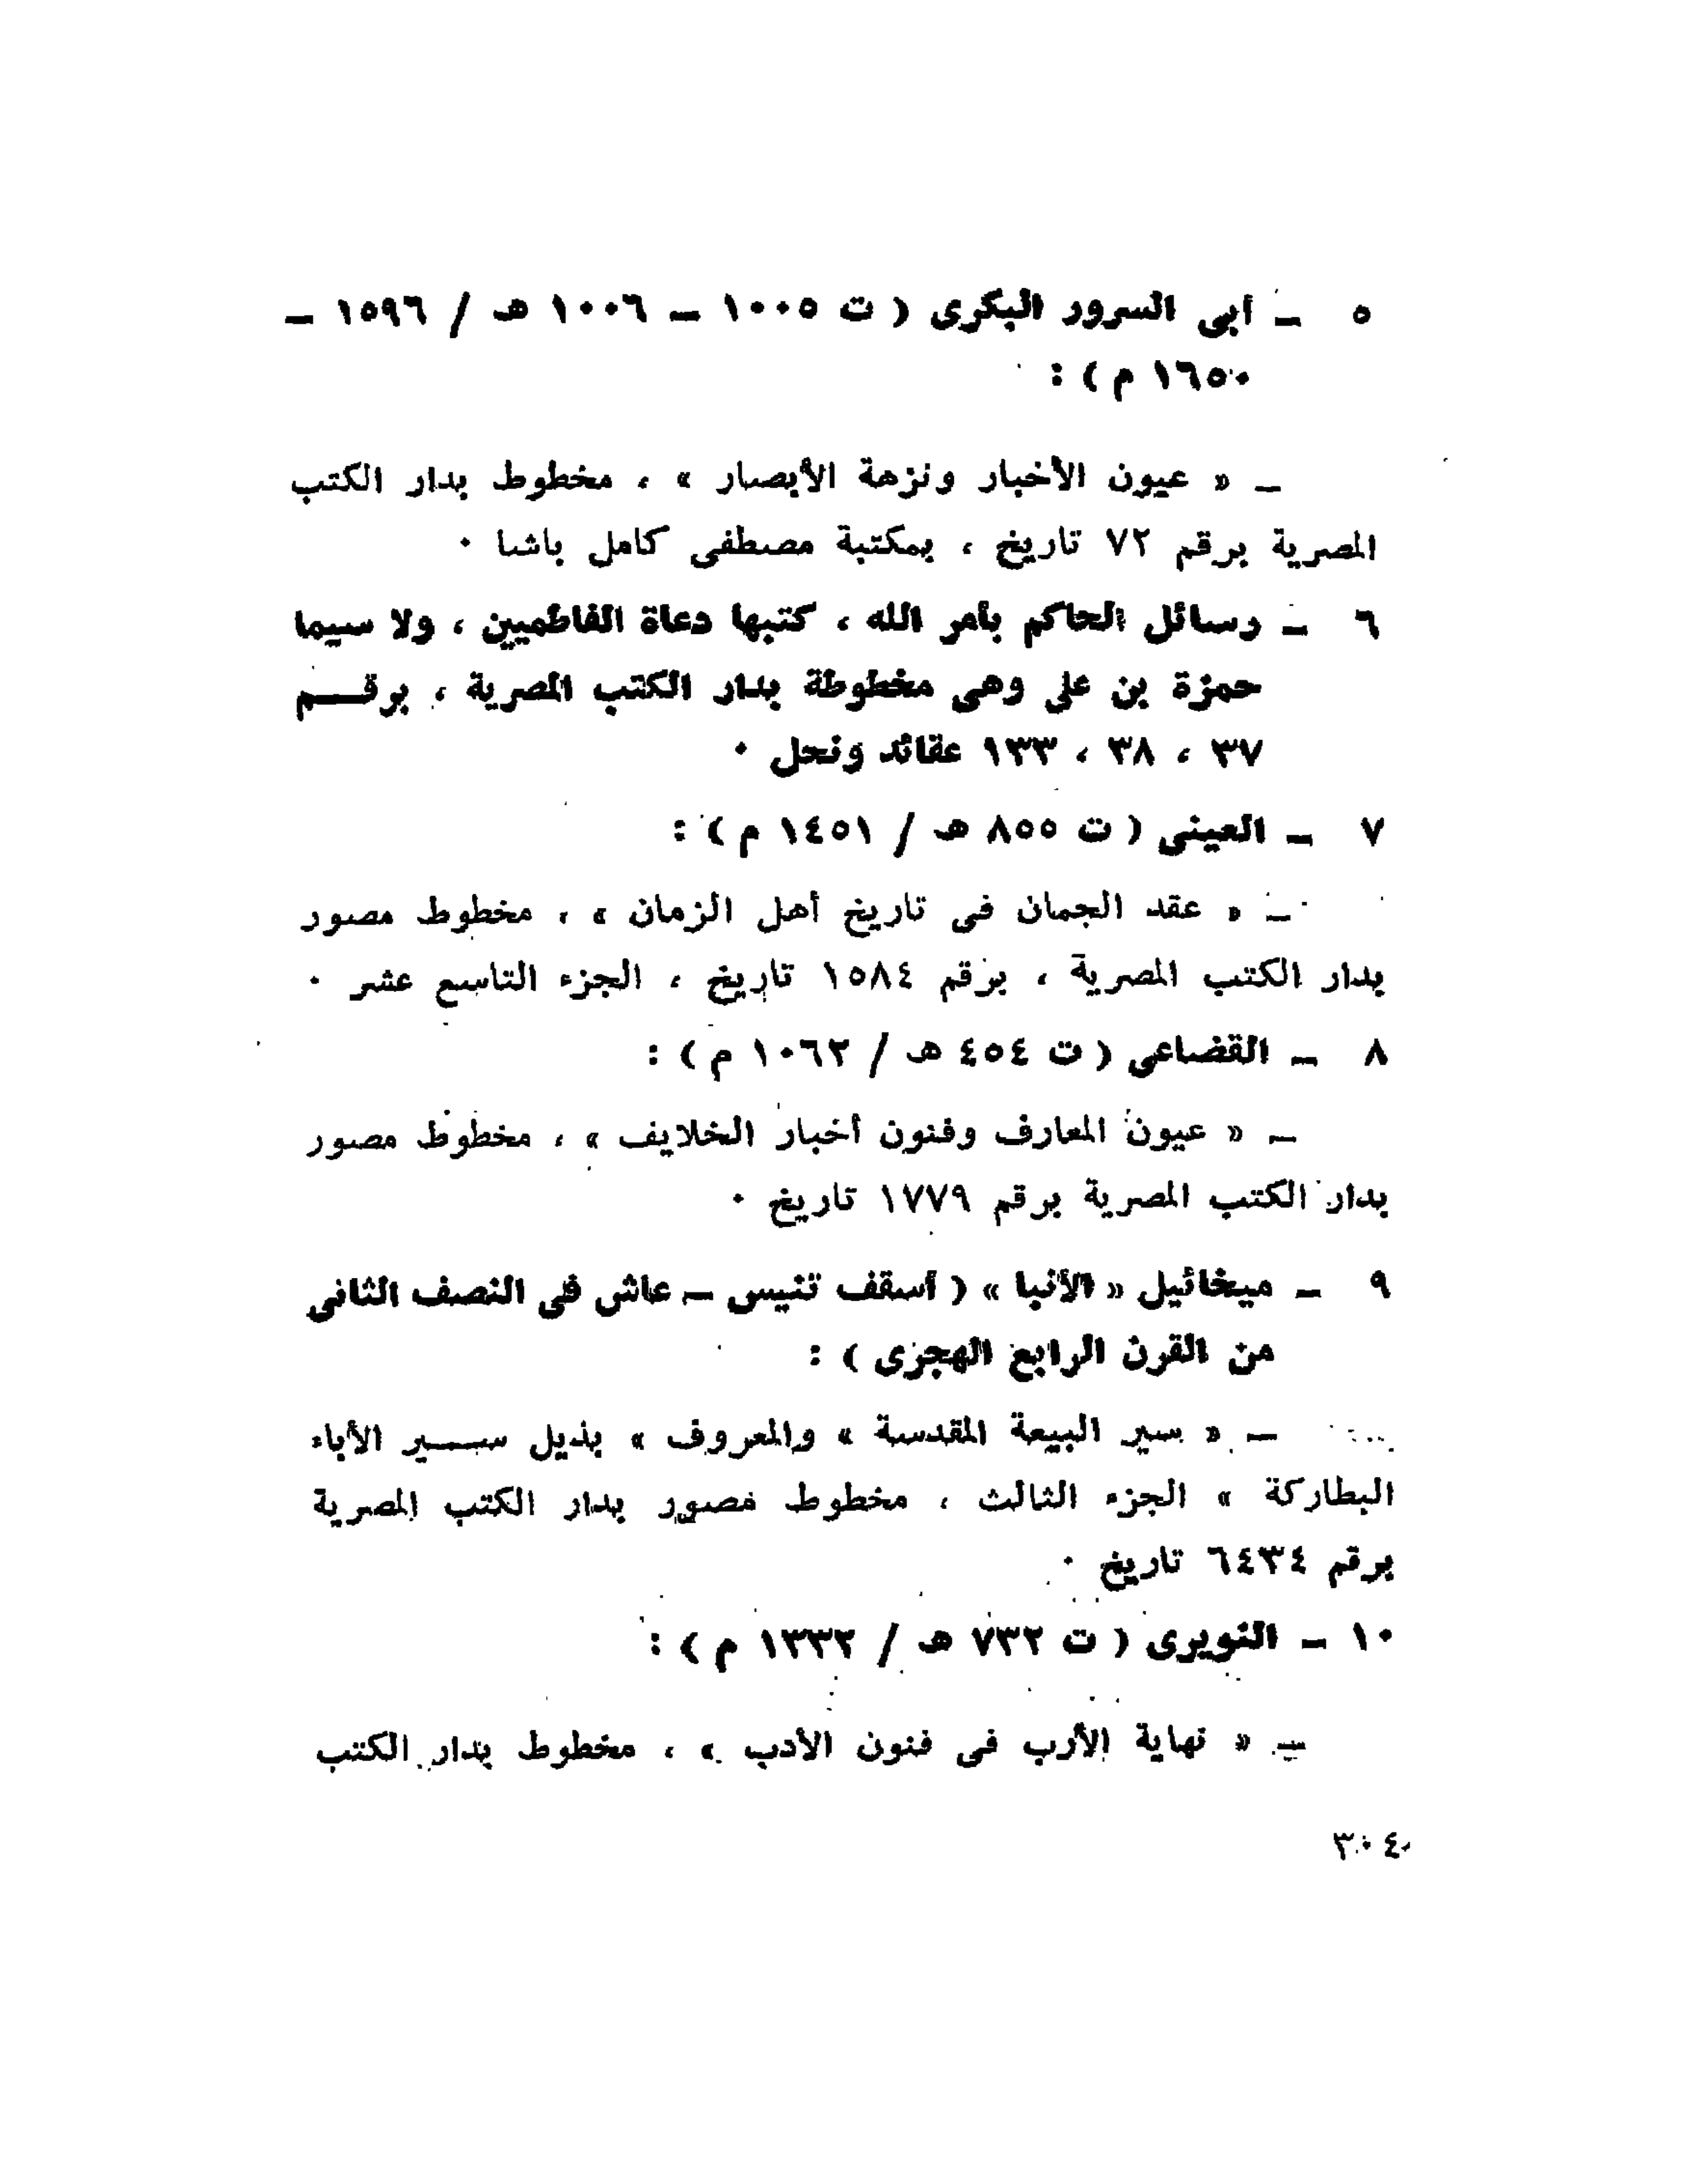 ٥ ــ أبى السرور البكرى ( ت ١٠٠٥ ــ ١٠٠٦ هـ / ١٥٩٦ ــ
١٦٥٠ م ) :
ــ « عيون الأخبار ونزهة الأبصار » ، مخطوط بدار الكتب
المصرية برقم ٧٢ تاريخ ، بمكتبة مصطفى كامل باشا ٠
٦ ــ رسائل الحاكم بأمر الله ، كتبها دعاة الفاطميين ، ولا سيما
حمزة بن على وهى مخطوطة بدار الكتب المصرية ، برقــم
٣٧ ، ٣٨ ، ١٣٣ عقائد ونحل ٠
٧ ــ العينى ( ت ٨٥٥ هـ / ١٤٥١ م ) :
ــ « عقد الجمان فى تاريخ أهل الزمان » ، مخطوط مصور
بدار الكتب المصرية ، برقم ١٥٨٤ تاريخ ، الجزء التاسع عشر ٠
٨ ــ القضاعى ( ت ٤٥٤ هـ / ١٠٦٢ م ) :
ــ « عيون المعارف وفنون أخبار الخلايف » ، مخطوط مصور
بدار الكتب المصرية برقم ١٧٧٩ تاريخ ٠
٩ ــ ميخائيل « الأنبا » ( أسقف تنيس ــ عاش فى النصف الثانى
من القرن الرابع الهجرى ) :
ــ « سير البيعة المقدسة » والمعروف « بذيل ســير الأباء
البطاركة » الجزء الثالث ، مخطوط مصور بدار الكتب المصرية
برقم ٦٤٣٤ تاريخ ٠
١٠ ــ النويرى ( ت ٧٣٢ هـ / ١٣٣٢ م ) :
ــ « نهاية الأرب فى فنون الأدب » ، مخطوط بدار الكتب
٣٠٤